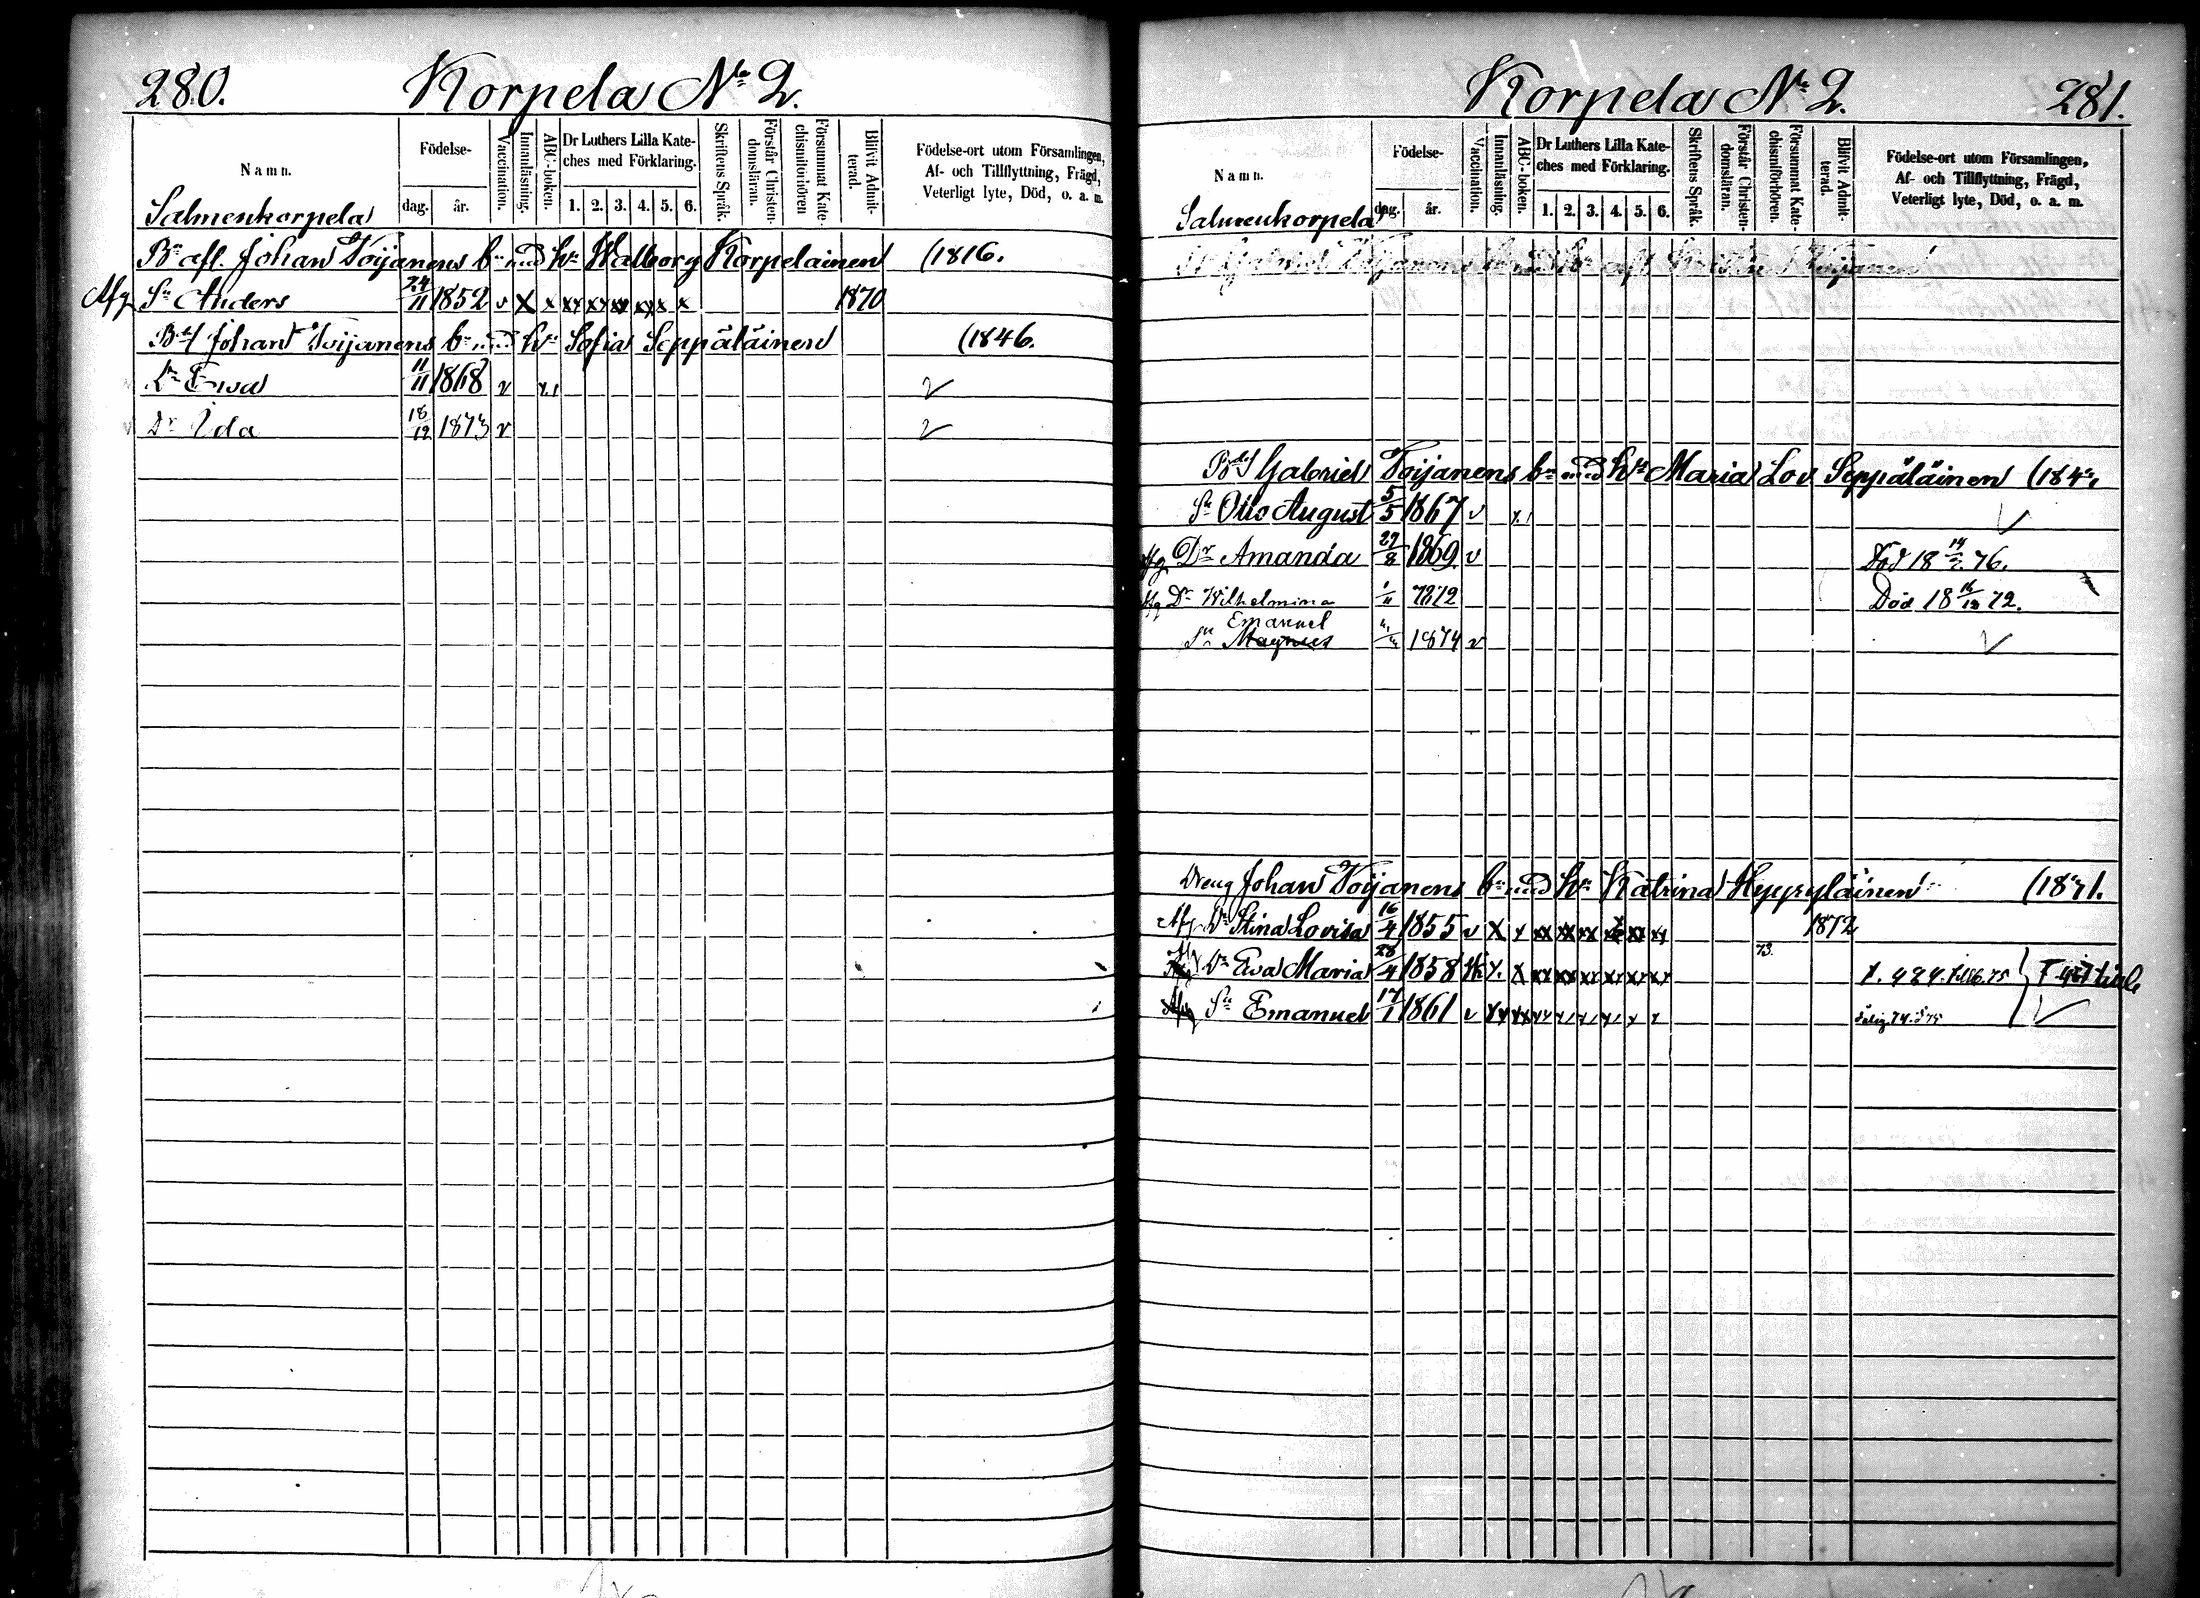 280.
Korpela No 2.
Namn.
Födelse-
dag.
år.
Vaccination.
Innanläsning.
ABC-boken.
Dr Luthers Lilla Kate-
ches med Förklaring.
1. 2. 3. 4. 5. 6.
Skriftens Språk.
Förstår Christen-
domsläran.
Försummat Kate-
chismiförhören
Blifvit Admit-
terad.
Födelse-ort utom Församlingen,
Af- och Tillflyttning, Frägd,
Veterligt lyte, Död, o. a. m.
Salmenkorpela
Bn afl. Johan Toijanens bn med hu Walborg Korpelainen (1816.
Afg Sn Anders 24/11 1852 v x x xx xx xx xx x x 1870
Johan Toijanens bn med hu Sofia Seppäläinen (1846.
Dr Ewa 11/11 1868 v
Dr Ida 18/12 1873 v
Korpela No 2.
281.
Namn.
Födelse-
dag.
år.
Vaccination.
Innanläsning.
ABC-boken.
Dr Luthers Lilla Kate-
ches med Förklaring.
1. 2. 3. 4. 5. 6.
Skriftens Språk.
Förstår Christen-
domsläran.
Försummat Kate-
chismförhören.
Blifvit Admit-
terad.
Födelse-ort utom Församlingen,
Af- och Tillflyttning, Frägd,
Veterligt lyte, Död, o. a. m.
Salmenkorpela
Gabriel Toijanens bn med hu Maria Lov. Seppäläinen
Sn Otto August 5/5 1867 v
Afg Dr Amanda 27/8 1869. v Död 18 76.
Afg Dr Wilhelmina 1/11 1872 Död 18 16/12 72.
Emanuel
Sn Magnus 1874 v
Dreng Johan Toijanens bn med hu Katrina Hyyryläinen
Afg Dr Stina Lovisa 16/4 1855 v x x xx xx xx xx xx 1872
Dr Ewa Maria 28/4 1858 73.
Sn Emanuel 17/1 1861 v